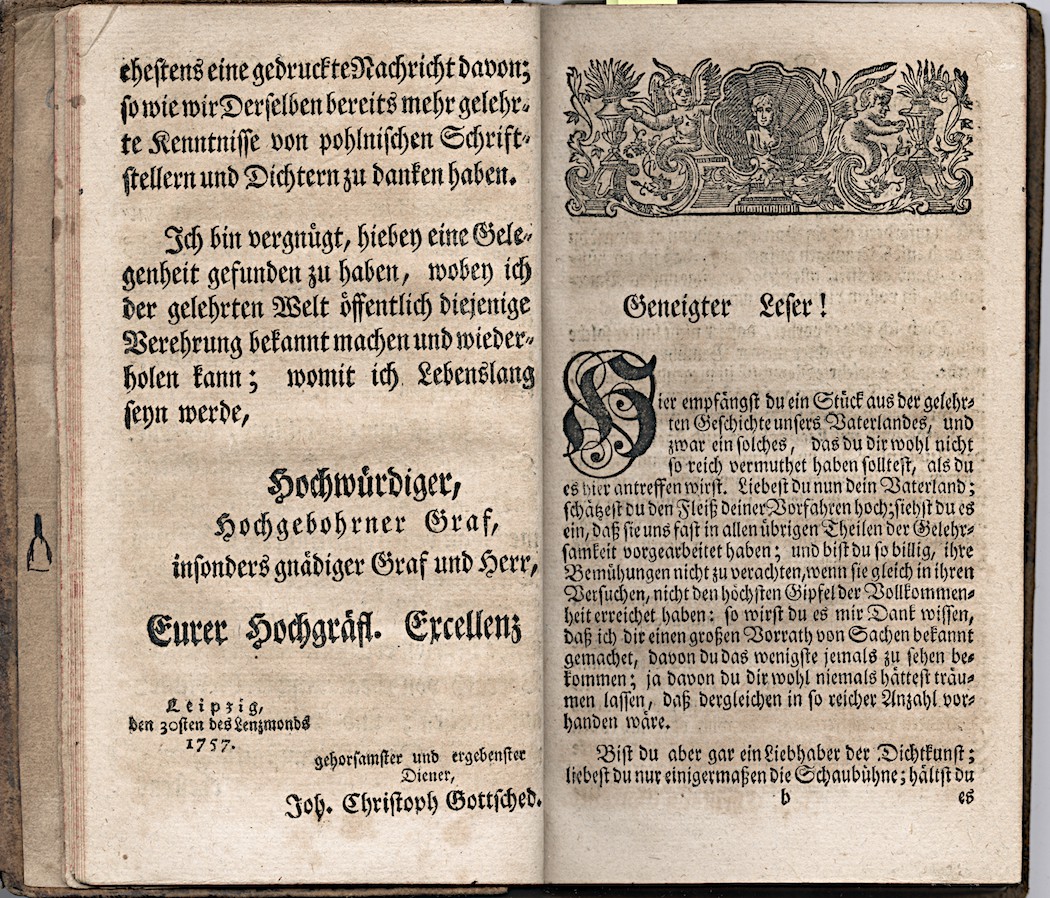 ehestens eine gedruckte Nachricht davon;
so wie wir Derselben bereits mehr gelehr-
te Kenntnisse von pohlnischen Schrift-
stellern und Dichtern zu danken haben.
Ich bin vergnügt, hiebey eine Gele-
genheit gefunden zu haben, wobey ich
der gelehrten Welt öffentlich diejenige
Verehrung bekannt machen und wieder-
holen kann; womit ich Lebenslang
seyn werde,
Hochwürdiger,
Hochgebohrner Graf,
insonders gnädiger Graf und Herr,
Eurer Hochgräfl. Excellenz
Leipzig,
den 30sten des Lenzmonds
1757.
gehorsamster und ergebenster
Diener,
Joh. Christoph Gottsched.
Geneigter Leser!
Hier empfängst du ein Stück aus der gelehr-
ten Geschichte unsers Vaterlandes, und
zwar ein solches, das du dir wohl nicht
so reich vermuthet haben solltest, als du
es hier antreffen wirst. Liebest du nun dein Vaterland;
schätzest du den Fleiß deiner Vorfahren hoch; siehst du es
ein, daß sie uns fast in allen übrigen Theilen der Gelehr-
samkeit vorgearbeitet haben; und bist du so billig, ihre
Bemühungen nicht zu verachten, wenn sie gleich in ihren
Versuchen, nicht den höchsten Gipfel der Vollkommen-
heit erreichet haben: so wirst du es mir Dank wissen,
daß ich dir einen großen Vorrath von Sachen bekannt
gemachet, davon du das wenigste jemals zu sehen be-
kommen; ja davon du dir wohl niemals hättest träu-
men lassen, daß dergleichen in so reicher Anzahl vor-
handen wäre.
Bist du aber gar ein Liebhaber der Dichtkunst;
liebest du nur einigermaßen die Schaubühne; hältst du
b es